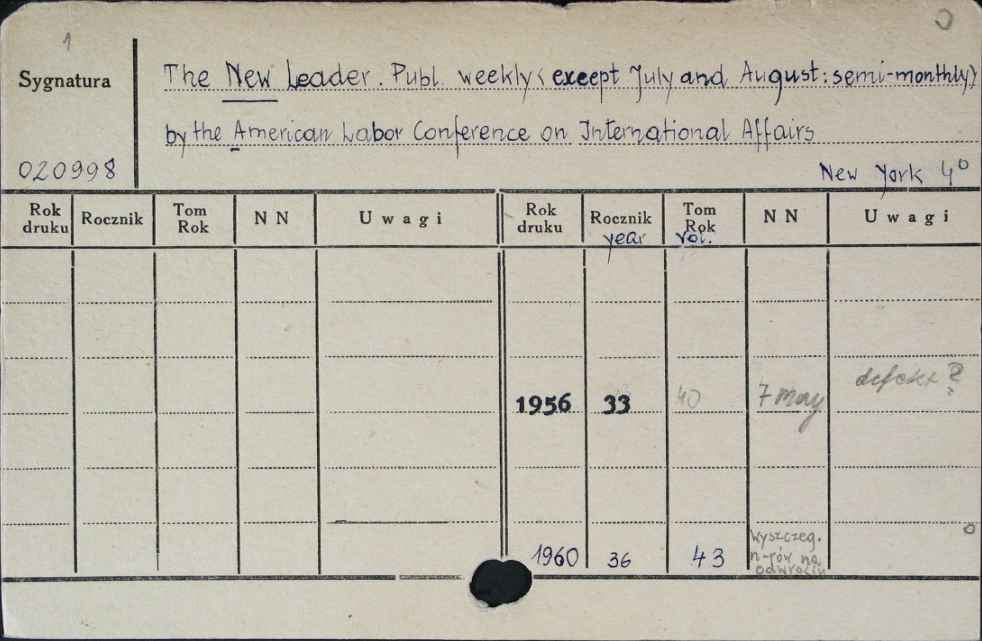 1
Sygnatura
The New Leader. Publ. weekly (except July and August: semi-monthly)
by the American Labor Conference on International Affairs
020998
New York 4°
Rok druku Rocznik Tom Rok NN Uwagi Rok druku Rocznik year Tom Rok vol. NN Uwagi
1956 33 40 7 may defekt ?
1960 36 43 wyszczeg. n-rów na odwrociu